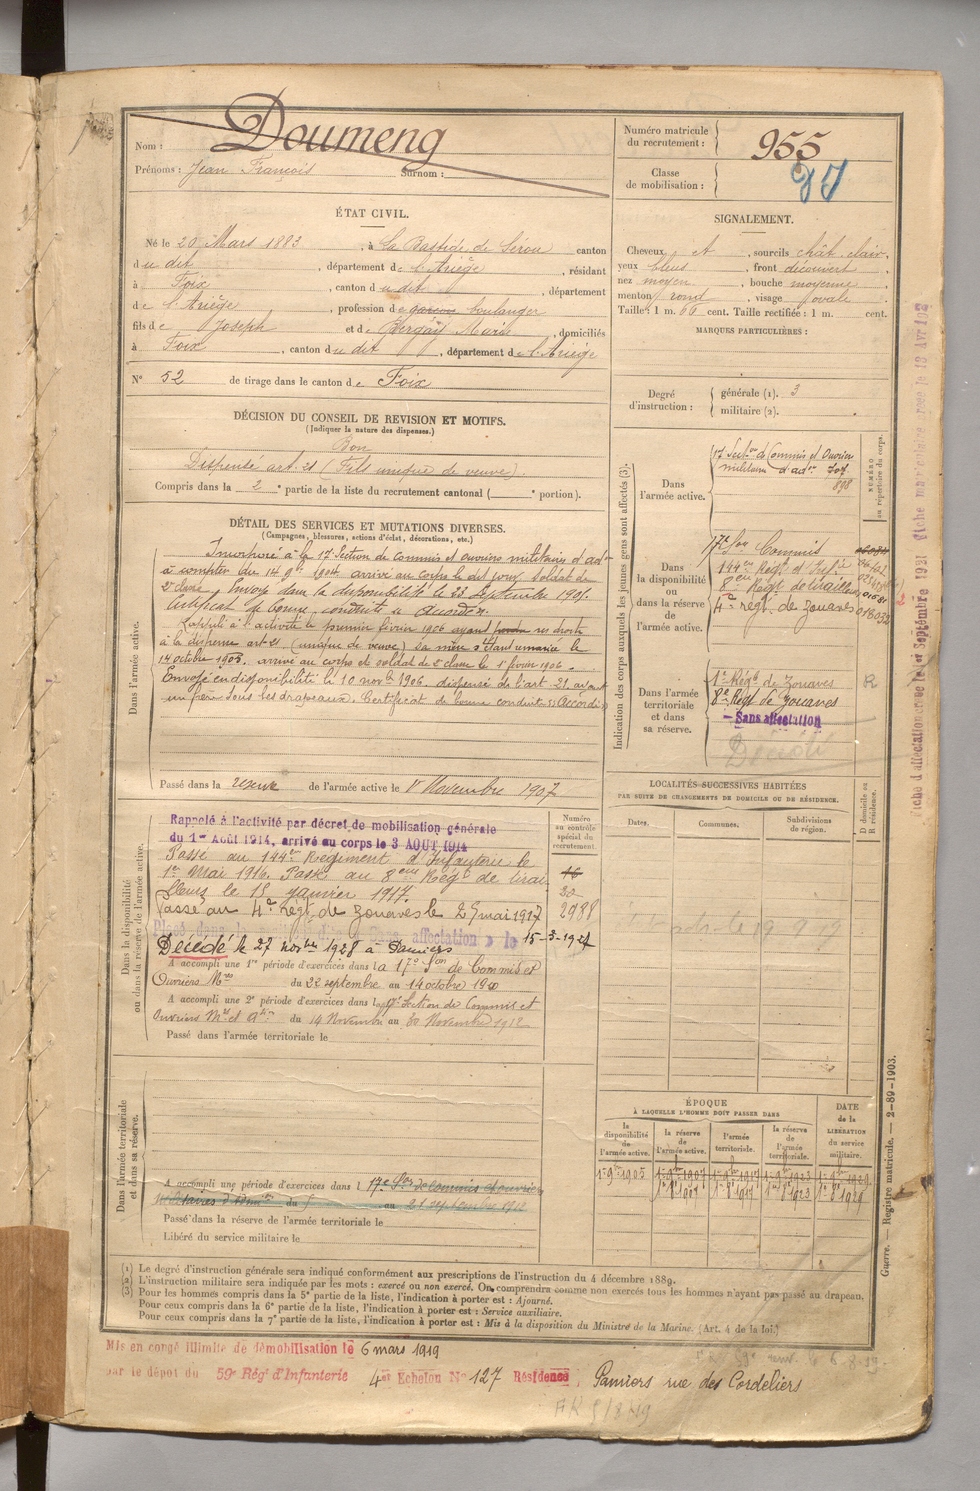 Nom : Doumeng
Prénoms : Jean François Surnom :
Numéro matricule du recrutement : 955
Classe de mobilisation :
ÉTAT CIVIL.
Né le 20 Mars 1883, à La Bastide de Sérou canton
du dit, département de l'Ariège, résidant
à Foix, canton du dit, département
de l'Ariège, profession de garçon boulanger
fils de Joseph et de Marie, domiciliés
à Foix, canton du dit, département de l'Ariège
N° 52 de tirage dans le canton de Foix
SIGNALEMENT.
Cheveux et, sourcils chât. clair,
yeux bleus, front découvert,
nez moyen, bouche moyenne,
menton rond, visage ovale
Taille : 1 m. 66 cent. Taille rectifiée : 1 m. cent.
MARQUES PARTICULIÈRES :
Degré d'instruction : générale (1). 3
militaire (2).
DÉCISION DU CONSEIL DE REVISION ET MOTIFS.
(Indiquer la nature des dispenses.)
Bon
Dispensé art. 21 (Fils unique de veuve).
Compris dans la 2e partie de la liste du recrutement cantonal ( e portion).
DÉTAIL DES SERVICES ET MUTATIONS DIVERSES.
(Campagnes, blessures, actions d'éclat, décorations, etc.)
Dans l'armée active.
Incorporé à la 17 Section de Commis et Ouvriers militaires d'adon
à compter du 14 9bre 1904, arrivé au corps le dit jour, soldat de
2e classe. Envoyé dans la disponibilité le 23 Septembre 1905.
Certificat de bonne conduite
Rappelé à l'activité le premier février 1906 ayant perdu ses droits
à la dispense art. 21 (unique de veuve) sa mère s'étant remariée le
14 octobre 1905. arrivé au corps et soldat de 2e classe le 1er février 1906.
Envoyé en disponibilité le 10 novbre 1906. dispensé de l'art. 21. ayant
un frère sous les drapeaux. Certificat de bonne conduite "Accordé"
Passé dans la réserve de l'armée active le 1er Novembre 1907
Indication des corps auxquels les jeunes gens sont affectés (3).
NUMÉRO au répertoire du corps.
Dans l'armée active.
17 Section de Commis et Ouvriers
militaires d'adon
898
Dans la disponibilité ou dans la réserve de l'armée active.
17e Son Commis
144ème Régt d'Infie
8ème Régt de tirailleurs
4e régt de Zouaves 018032
Dans l'armée territoriale et dans sa réserve.
1er Régt de Zouaves
8e Régt de Zouaves
Sans affectation
Décédé
R
LOCALITÉS SUCCESSIVES HABITÉES
PAR SUITE DE CHANGEMENTS DE DOMICILE OU DE RÉSIDENCE.
Dates. Communes. Subdivisions de région. D domicile ou R résidence.
Dans la disponibilité ou dans la réserve de l'armée active.
Numéro au contrôle spécial du recrutement.
Rappelé à l'activité par décret de mobilisation générale
du 1er Août 1914, arrivé au corps le 3 AOUT 1914
Passé au 144ème Régiment d'Infanterie le
1er Mai 1916. Passé au 8ème Régt de tirail-
leurs le 15 janvier 1917.
Passé au 4e régt de Zouaves le 25 mai 1917 2988
Sans affectation » le 15-3-1927
Décédé le 27 novbre 1928 à Pamiers
A accompli une 1re période d'exercices dans la 17e Son de Commis et
Ouvriers Mres du 22 septembre au 14 octobre 1910
A accompli une 2e période d'exercices dans la 17e Section de Commis et
Ouvriers Mres et Aon du 14 Novembre au 30 Novembre 1912
Passé dans l'armée territoriale le
Dans l'armée territoriale et dans sa réserve.
A accompli une période d'exercices dans l 17e Son de Commis et ouvriers
militaires d'Admon du au
Passé dans la réserve de l'armée territoriale le
Libéré du service militaire le
ÉPOQUE
À LAQUELLE L'HOMME DOIT PASSER DANS
la disponibilité de l'armée active. la réserve de l'armée active. l'armée territoriale. la réserve de l'armée territoriale.
DATE de la LIBÉRATION du service militaire.
1er 9bre 1905 1er 9bre 1907 1er 9bre 1917 1er 9bre 1923 1er 9bre 1929
1er 8 1907 1er 8 1917 1er 8 1923 1er 8 1929
(1) Le degré d'instruction générale sera indiqué conformément aux prescriptions de l'instruction du 4 décembre 1889.
(2) L'instruction militaire sera indiquée par les mots : exercé ou non exercé. On comprendra comme non exercés tous les hommes n'ayant pas passé au drapeau,
(3) Pour les hommes compris dans la 5e partie de la liste, l'indication à porter est : Ajourné.
Pour ceux compris dans la 6e partie de la liste, l'indication à porter est : Service auxiliaire.
Pour ceux compris dans la 7e partie de la liste, l'indication à porter est : Mis à la disposition du Ministre de la Marine. (Art. 4 de la loi.)
Guerre. — Registre matricule. — 2-89-1903.
Mis en congé illimité de démobilisation le 6 mars 1919
par le dépôt du 59e Rég d'Infanterie 4er Echelon N° 127 Résidence Pamiers rue des Cordeliers